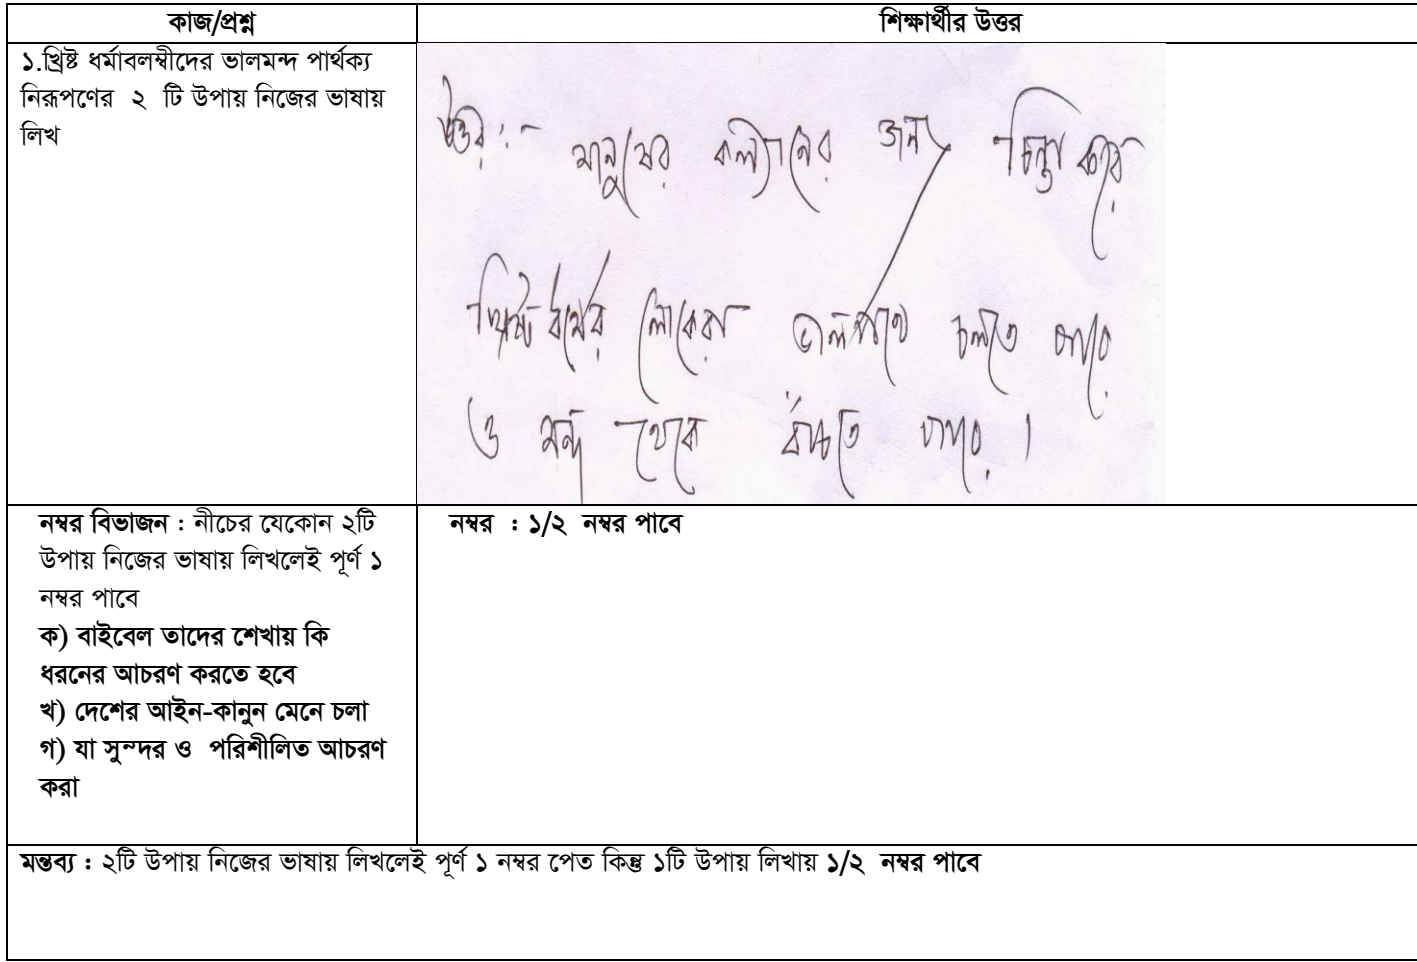 কাজ/প্রশ্ন
শিক্ষার্থীর উত্তর
১.খ্রিষ্ট ধর্মাবলম্বীদের ভালমন্দ পার্থক্য
নিরূপণের ২ টি উপায় নিজের ভাষায়
লিখ
উত্তর :- মানুষের কল্যানের জন্য চিন্তা করে
খ্রিষ্ট ধর্মের লোকেরা ভালপথে চলতে পারে
ও মন্দ থেকে বাঁচতে পারে।
নম্বর বিভাজন : নীচের যেকোন ২টি
উপায় নিজের ভাষায় লিখলেই পূর্ণ ১
নম্বর পাবে
ক) বাইবেল তাদের শেখায় কি
ধরনের আচরণ করতে হবে
খ) দেশের আইন-কানুন মেনে চলা
গ) যা সুন্দর ও পরিশীলিত আচরণ
করা
নম্বর : ১/২ নম্বর পাবে
মন্তব্য : ২টি উপায় নিজের ভাষায় লিখলেই পূর্ণ ১ নম্বর পেত কিন্তু ১টি উপায় লিখায় ১/২ নম্বর পাবে